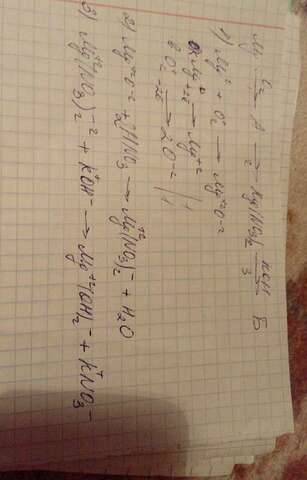 Mg →(O₂, 1) A →(2) Mg(NO₃)₂ →(KOH, 3) Б
1) Mg⁰ + O₂⁰ → Mg⁺²O⁻²
Mg⁰ -2e → Mg⁺² | 1
O₂⁰ → 2O⁻² | 1
2) Mg⁺²O⁻² + 2HNO₃ → Mg⁺²(NO₃)₂⁻ + H₂O
3) Mg⁺²(NO₃)₂⁻ + K⁺OH⁻ → Mg⁺²(OH)₂⁻ + K⁺NO₃⁻